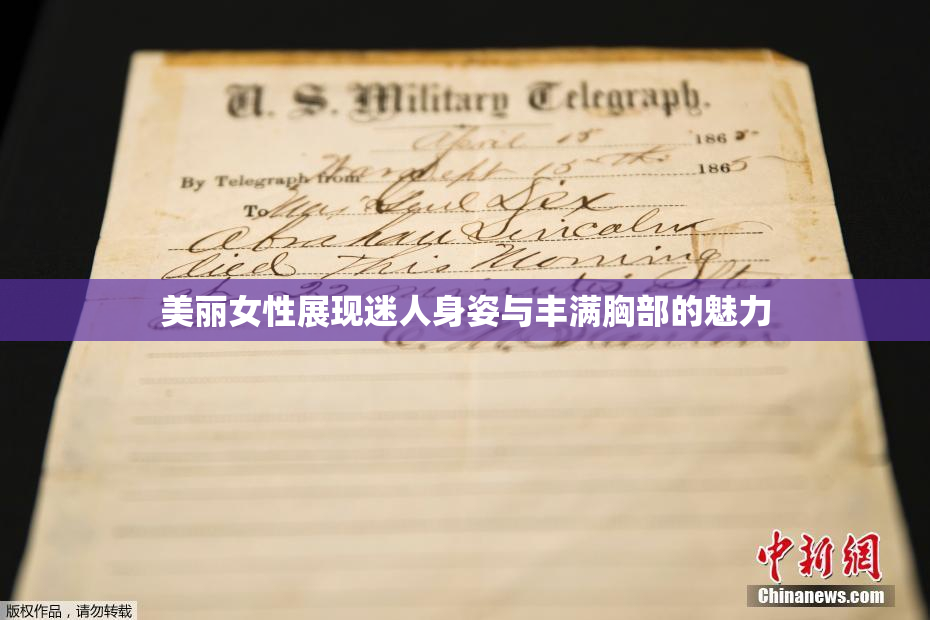 U. S. Military Telegraph.
April 15 1865
By Telegraph from War Dept 15th 1865
To Maj Genl Dix
Abraham Lincoln
died This Morning
at 22 minutes after
美丽女性展现迷人身姿与丰满胸部的魅力
E. M. Stanton
中新網
Chinanews.com
版权作品，请勿转载